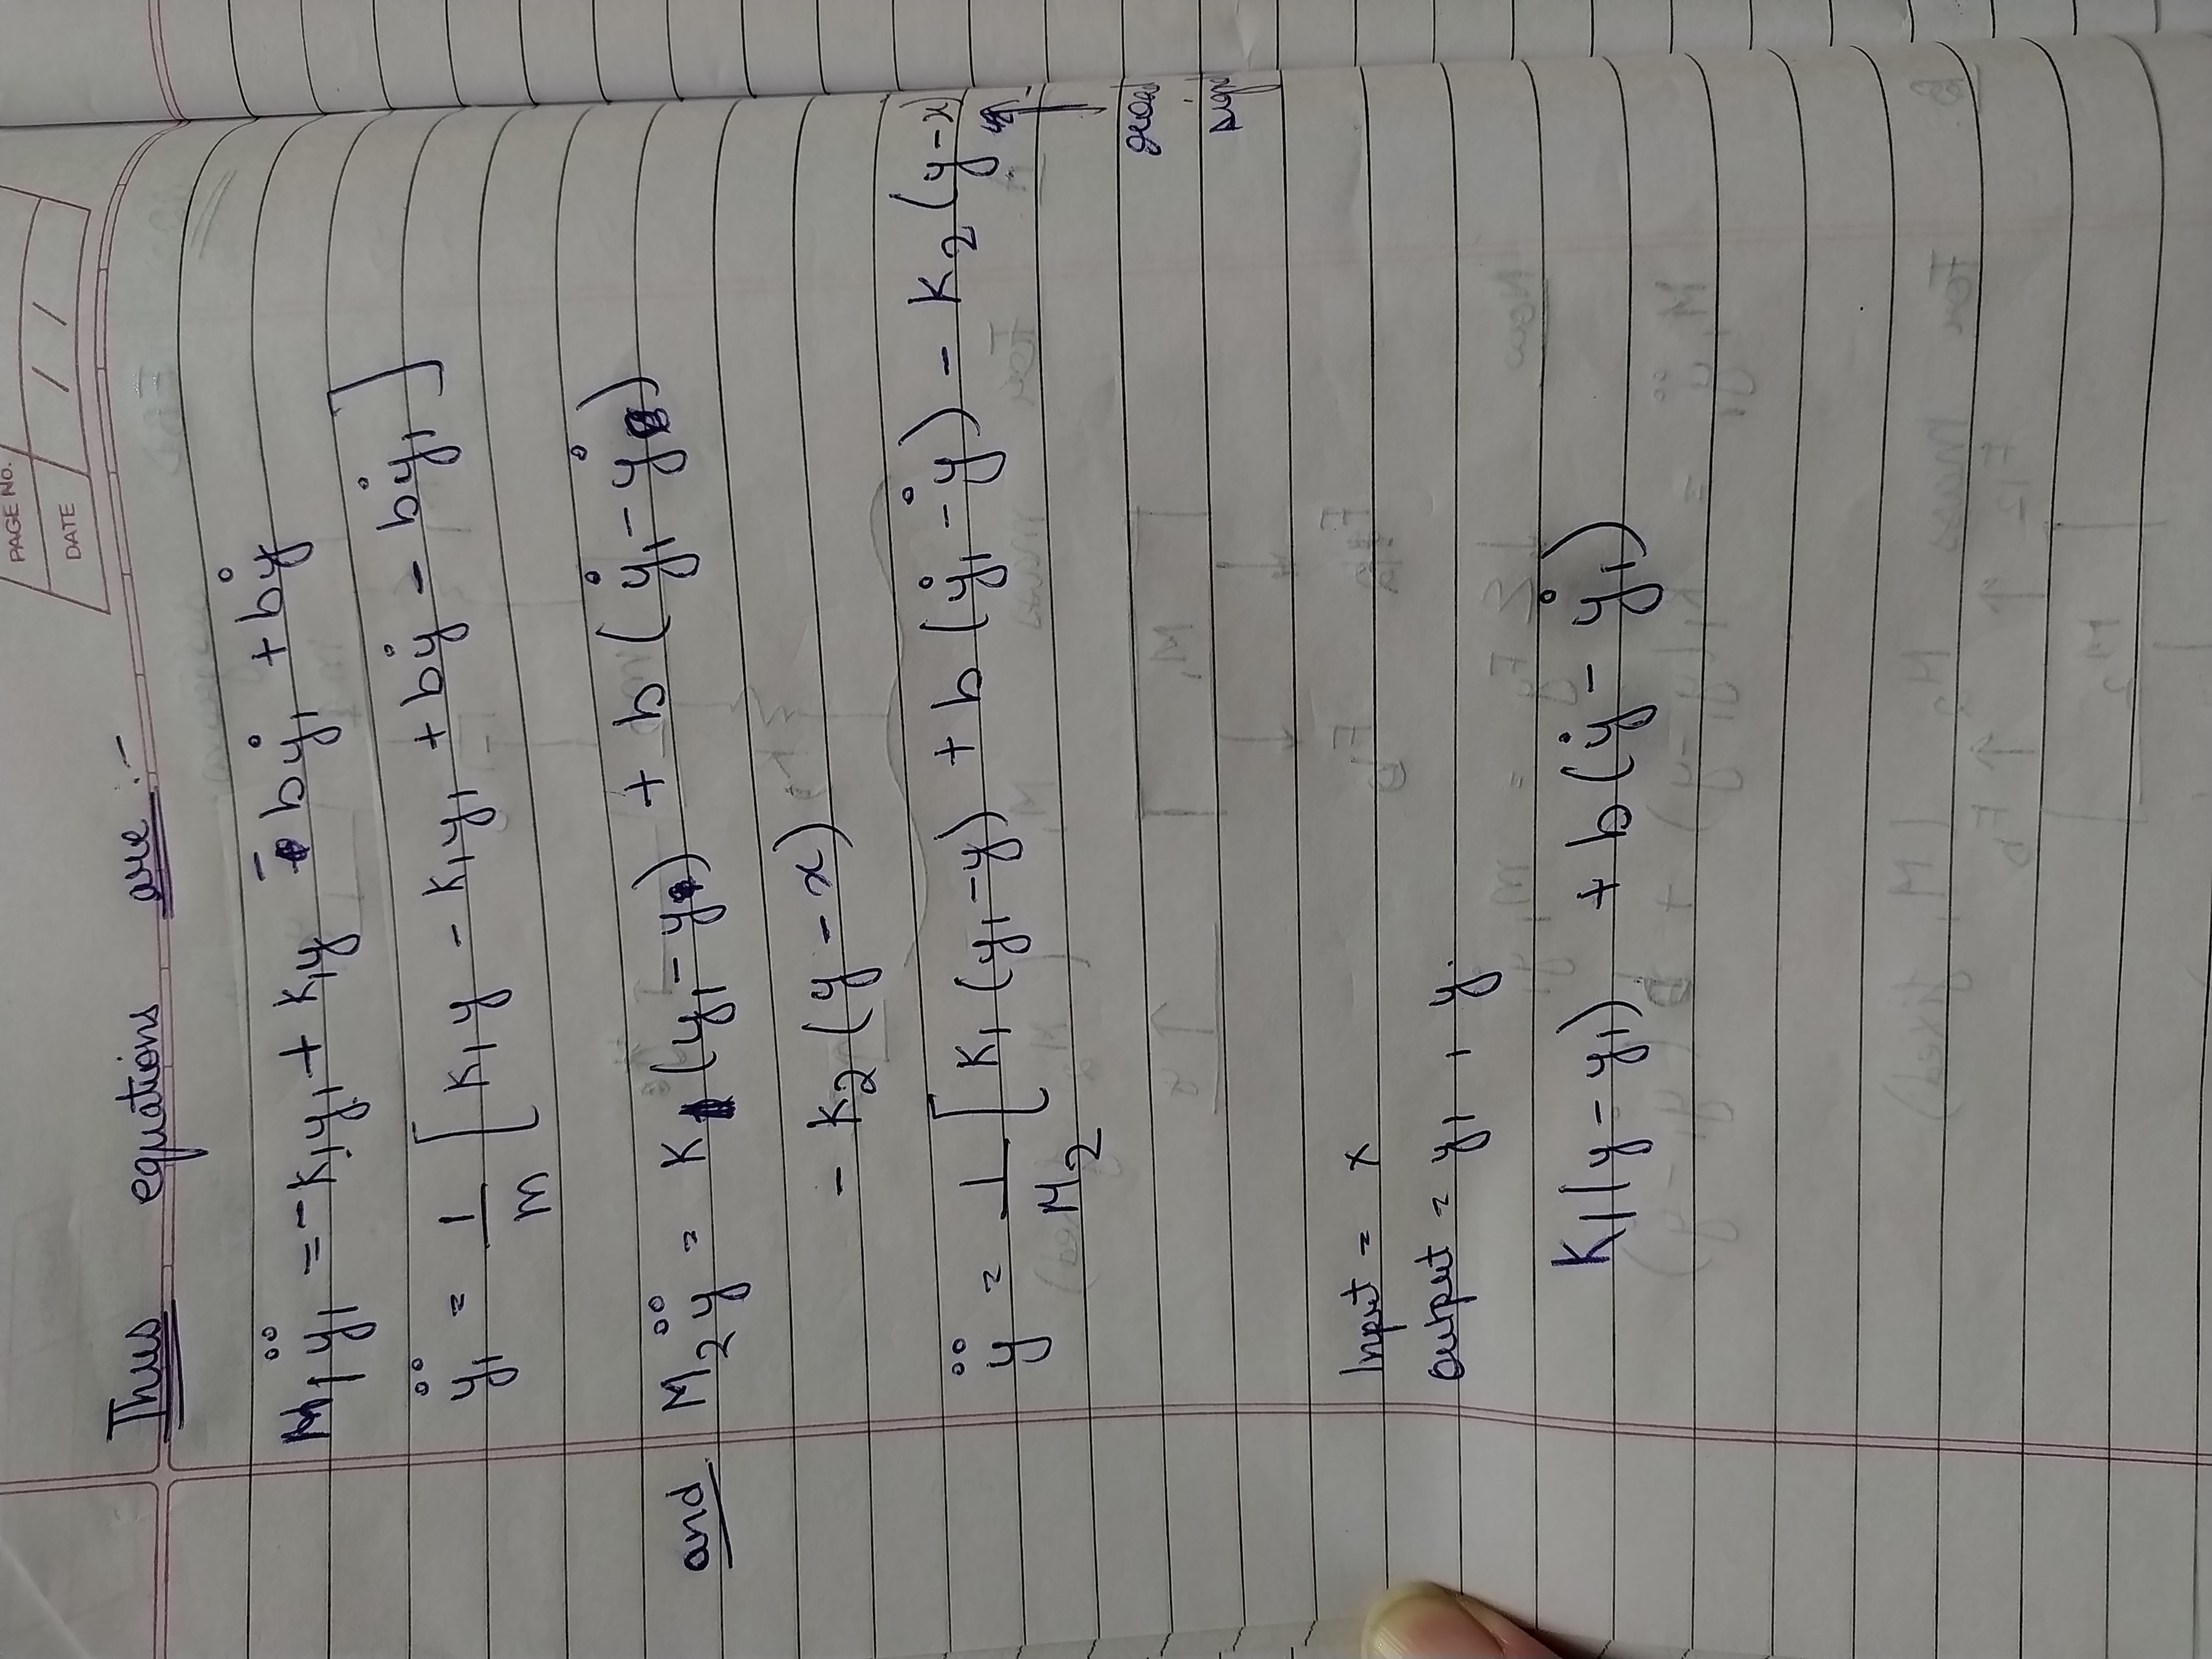 PAGE No.
DATE / /
Thus equations are :-
M₁ÿ₁ = -K₁y₁ + K₁y - bẏ₁ + bẏ
ÿ₁ = 1/m [ K₁y - K₁y₁ + bẏ - bẏ₁ ]
and M₂ÿ = K₁ (y₁ - y) + b (ẏ₁ - ẏ)
- K₂ (y - x)
ÿ = 1/M₂ [ K₁ (y₁ - y) + b (ẏ₁ - ẏ) - K₂ (y - x)
road
Input = x
output = y₁ , y.
K₁(y - y₁) + b(ẏ - ẏ₁)